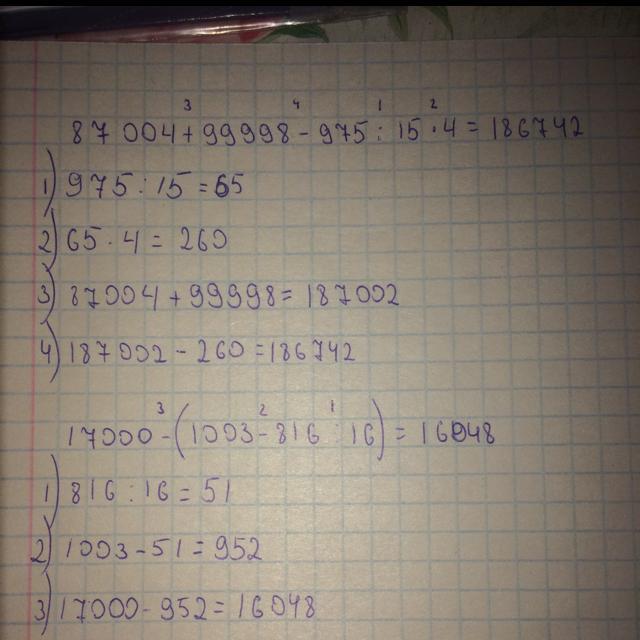 3 4 1 2
87 004 + 99998 - 975 : 15 · 4 = 186742
1) 975 : 15 = 65
2) 65 · 4 = 260
3) 87004 + 99998 = 187002
4) 187 002 - 260 = 186742
3 2 1
17000 - (1003 - 816 : 16) = 16048
1) 816 : 16 = 51
2) 1003 - 51 = 952
3) 17000 - 952 = 16048